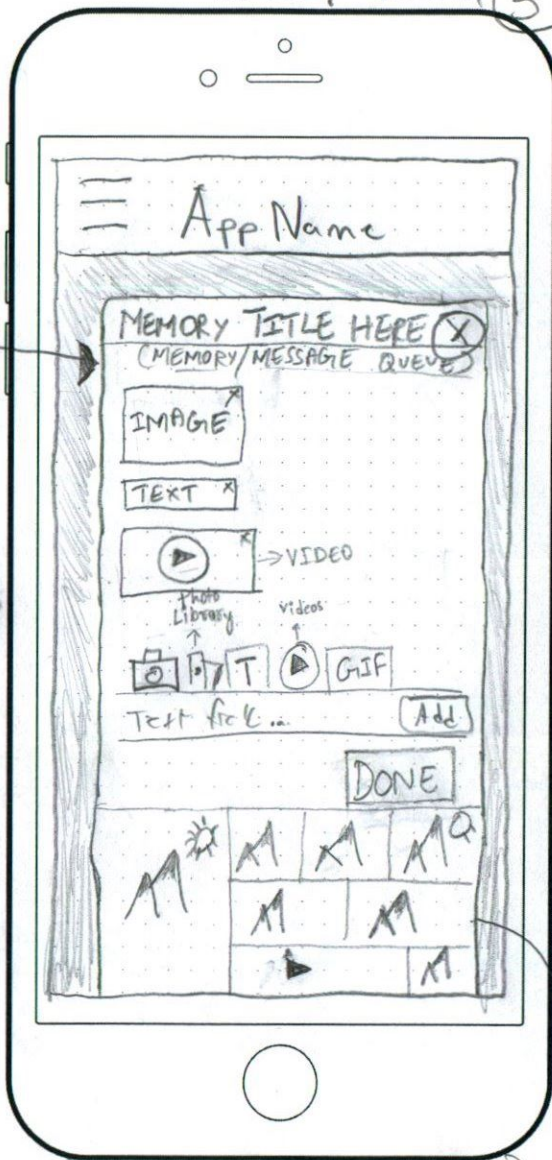 App Name
MEMORY TITLE HERE X
(MEMORY/MESSAGE QUEUE)
IMAGE X
TEXT X
X
→ VIDEO
Photo
Library
Videos
T GIF
Add
DONE